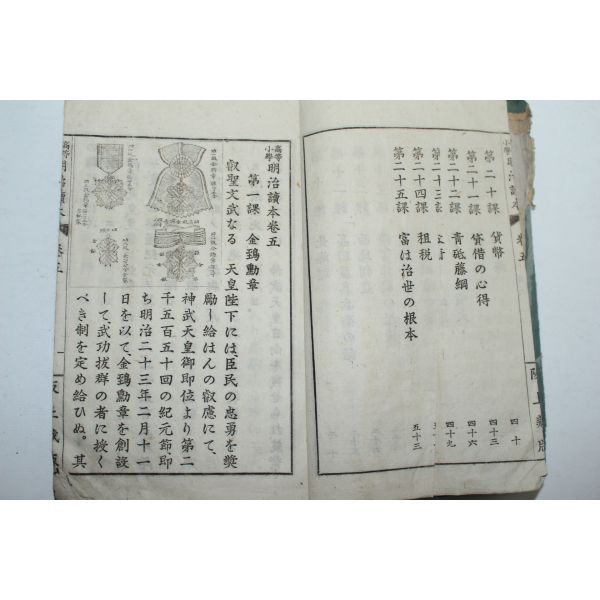 高等小學 明治讀本 卷五
第二十課 貨幣 四十
第二十一課 貸借の心得 四十三
第二十二課 青砥藤綱 四十六
第二十三課 四十九
第二十四課 租税
第二十五課 富は治世の根本 五十三
高等小學 明治讀本卷五
第一課 金鵄勲章
叡聖文武なる 天皇陛下には、臣民の忠勇を奬
勵し給はんの叡慮にて、
神武天皇御即位より第二
千五百五十回の紀元節、即
ち明治二十三年二月十一
日を以て、金鵄勲章を創設
して、武功拔群の者に授く
べき制を定め給ひぬ。其
高等 明治讀本 卷五